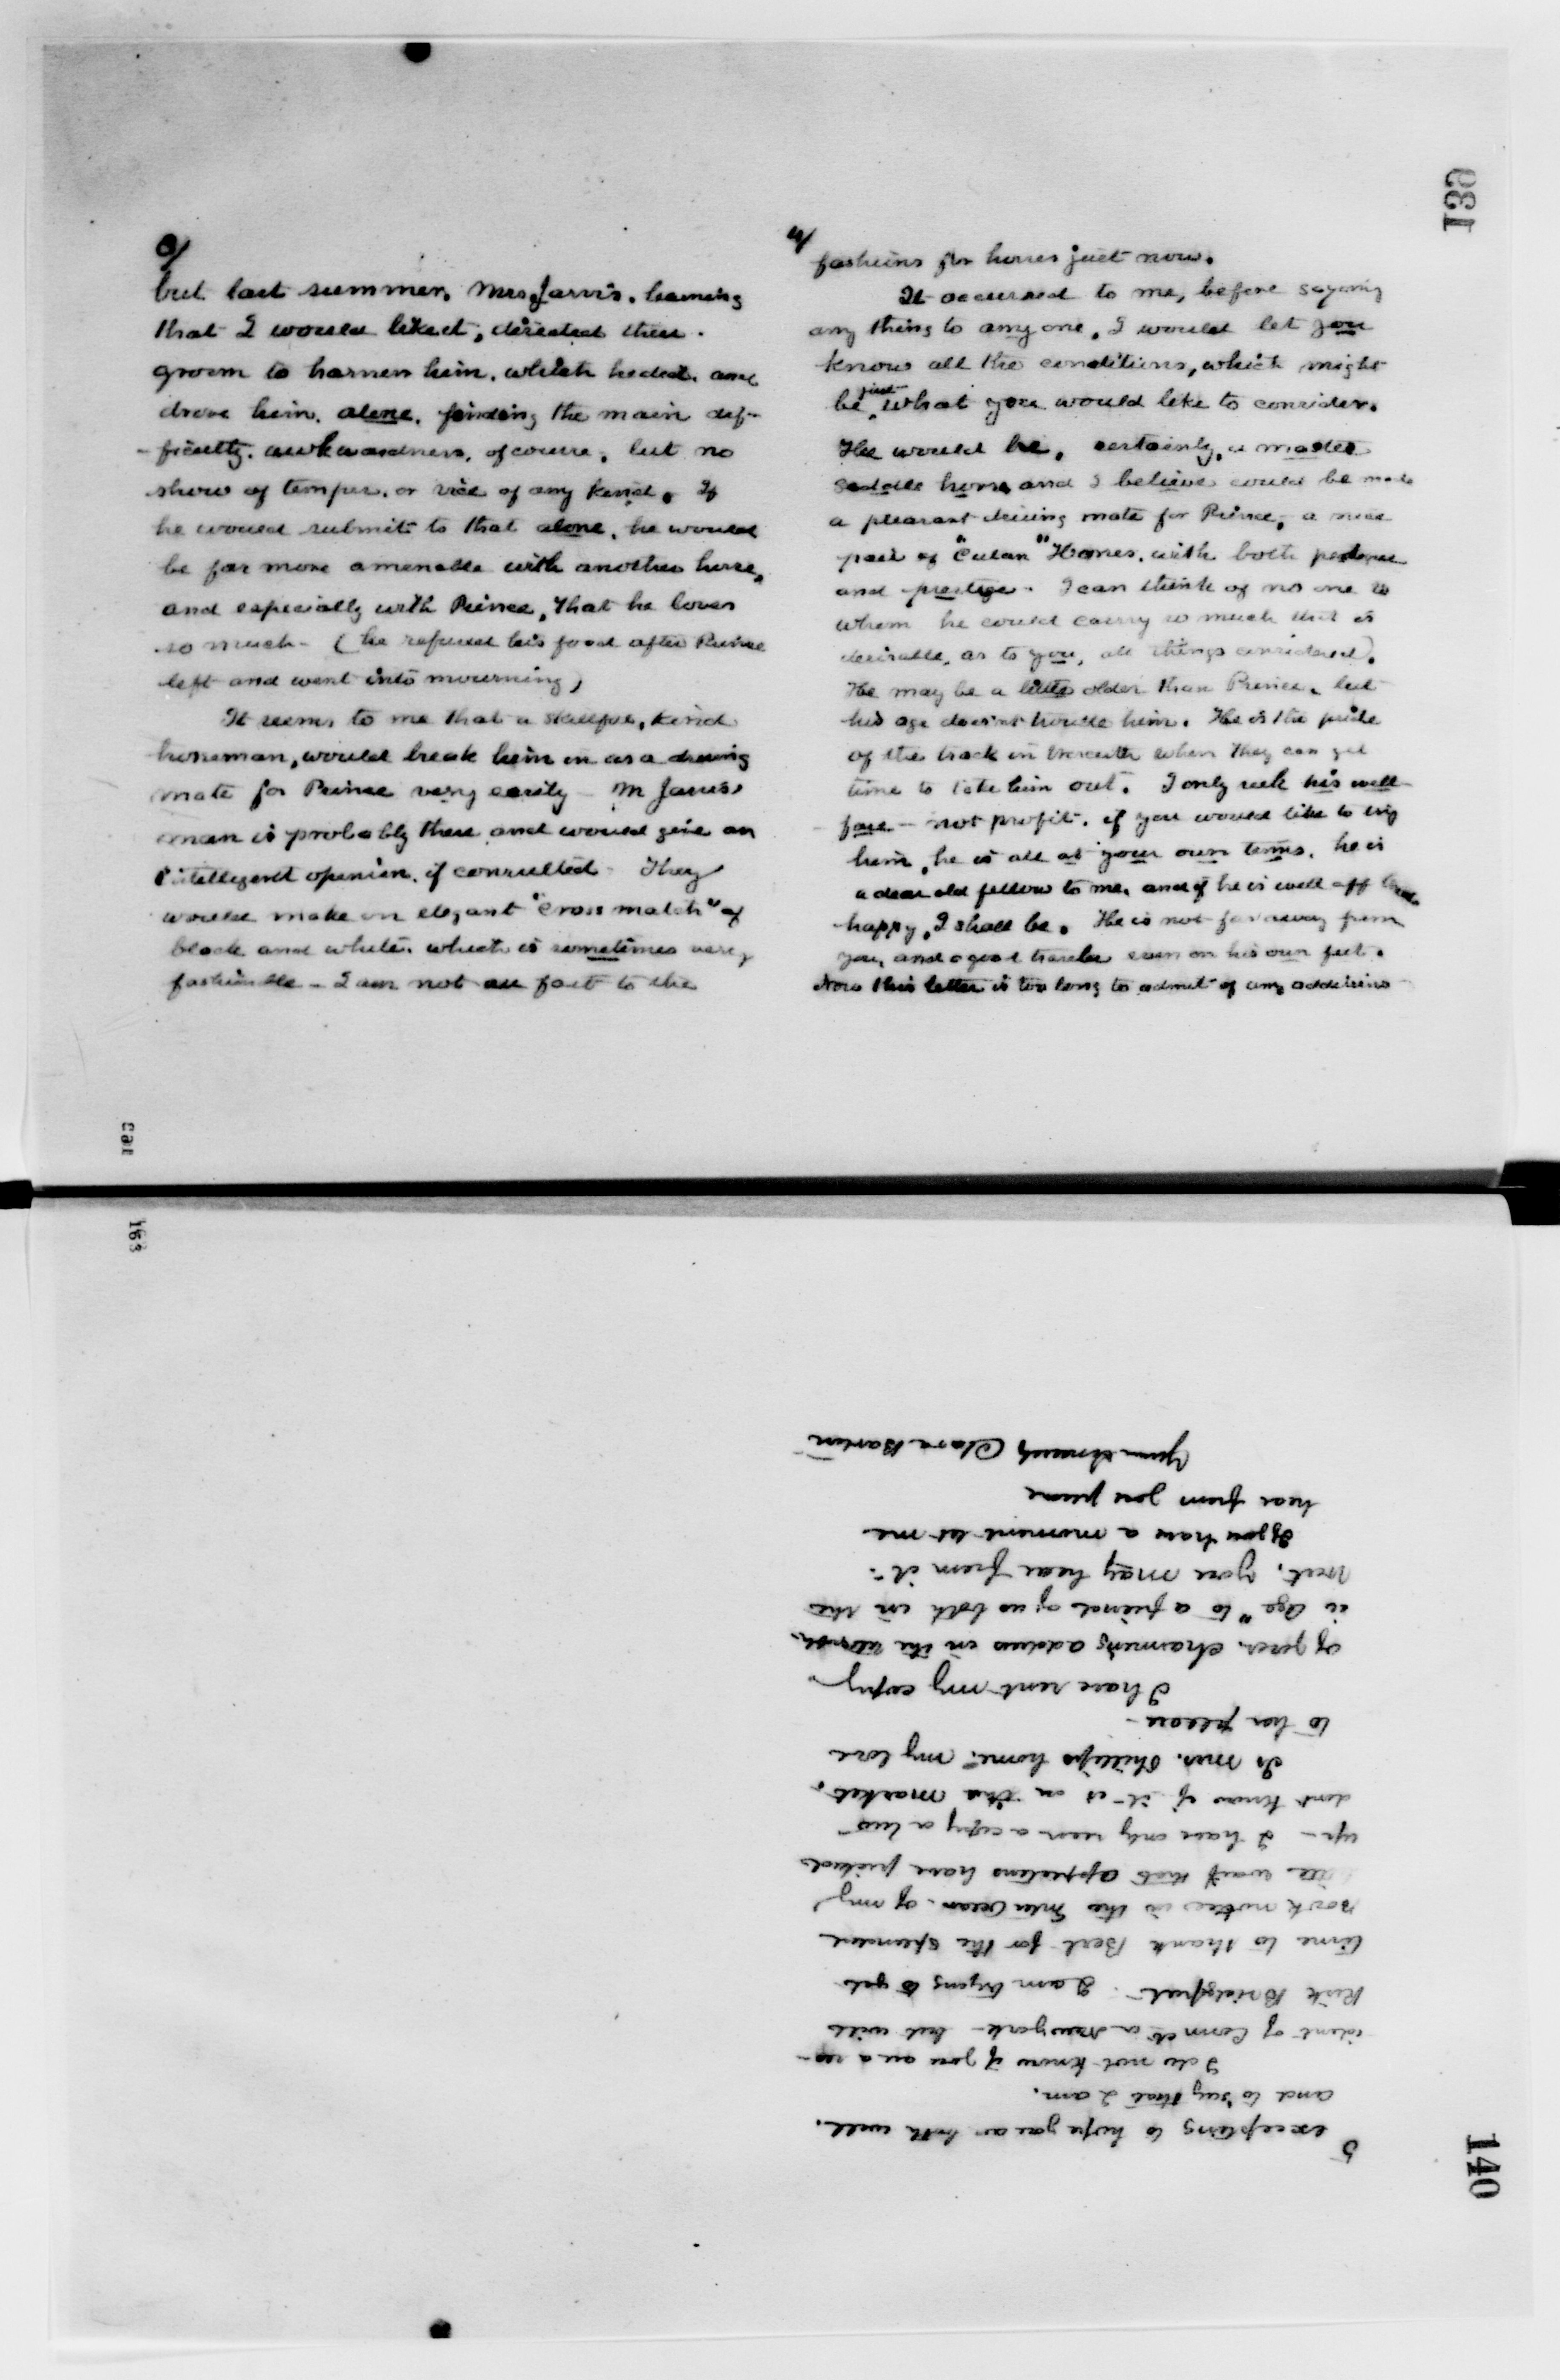 139
3/
but last summer. Mrs. Jarvis. learning
that I would like it, directed their
groom to harness him. which he did. and
drove him. alone. finding the main dif-
-ficulty. awkwardness. of course, but no
show of temper. or vice of any kind. If
he would submit to that alone, he would
be far more amenable with another horse,
and especially with Prince, that he loves
so much - (he refused his food after Prince
left and went into mourning)
It seems to me that a skillful, kind
horseman, would break him in as a driving
mate for Prince very easily - Mr Jarvis'
man is probably there and would give an
intelligent opinion. if consulted - They
would make an elegant "cross match" of
black and white. which is sometimes very
fashionable - I am not au fait to the
4/
fashions for horses just now.
It occurred to me, before saying
any thing to any one, I would let you
know all the conditions, which might
be just what you would like to consider.
He would be, certainly, a model
saddle horse, and I believe could be made
a pleasant driving mate for Prince, a nice
pair of "Cuban" Horses. with both
and prestige - I can think of no one to
whom he could carry so much that is
desirable, as to you, all things considered.
He may be a little older than Prince, but
his age doesn't trouble him. He is the pride
of the track in when they can get
time to take him out. I only seek his well-
fare - not profit. if you would like to try
him, he is all at your own terms. he is
a dear old fellow to me, and if he is well off and
happy, I shall be. He is not far away from
you, and a good traveler even on his own feet.
Now this letter is too long to admit of any additions
163
140
5
excepting to hope you are both well.
and to say that I am.
I do not know if you are a res-
ident of Conn ct. or New York - but will
Risk Bridgeport - I am trying to get
time to thank Bert for the splendid
Book notices in the Inter Ocean - of my
little waif that Appletons have picked
up - I have only seen a copy or two
dont know if it is on the market.
Is Mrs. Phillips home? my love
to her please -
I have sent my copy
of your charming address in the
is Age" to a friend of us both in the
West. you may hear from it.
If you have a moment let me
hear from you please
Yours sincerely Clara Barton